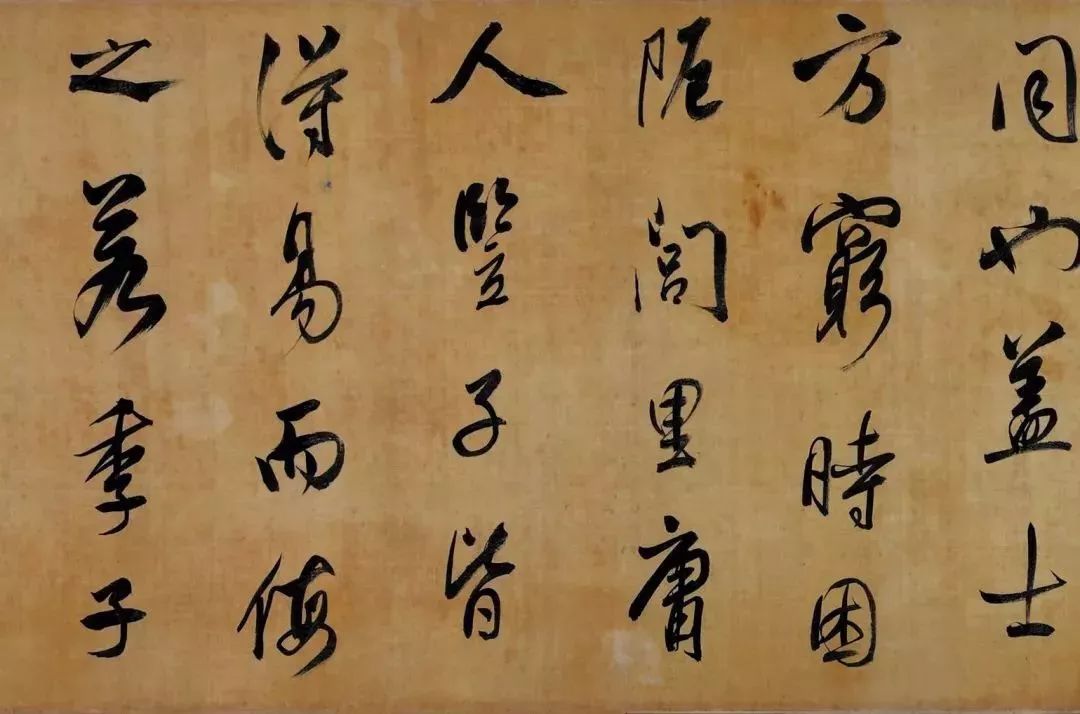 同也蓋士
方窮時困
阨閭里庸
人豎子皆
得易而侮
之若季子